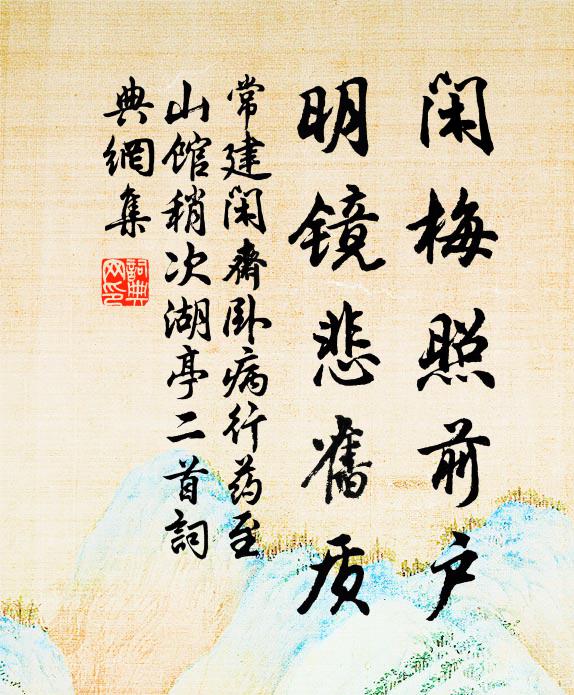 闲梅照前户
明镜悲旧质
常建闲斋卧病行药至
山馆稍次湖亭二首词
典网集
词典
网印